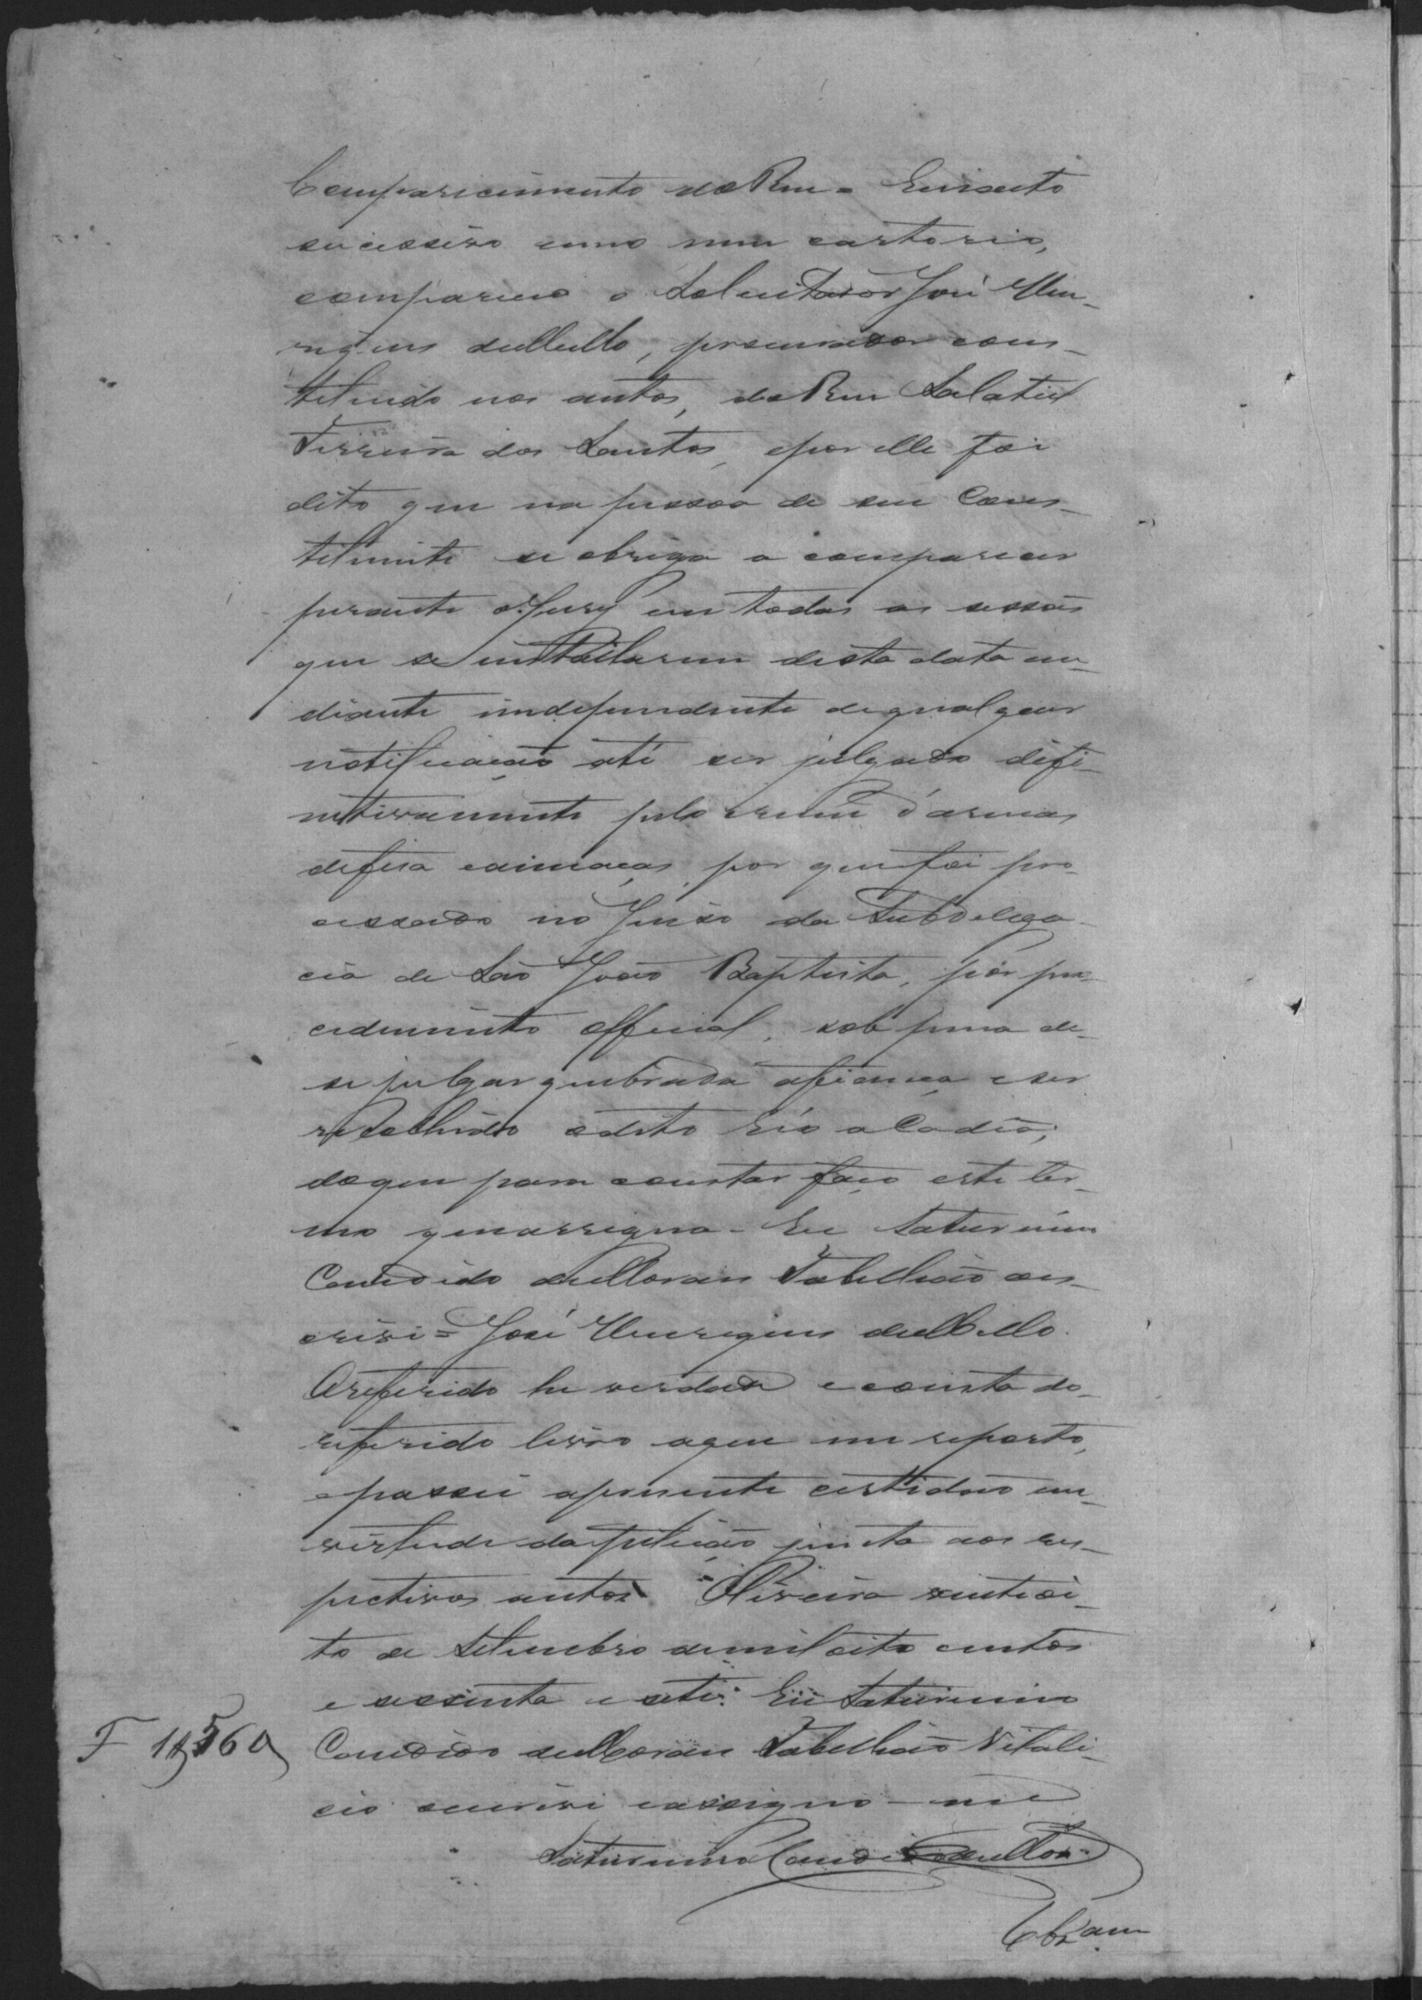 Comparecimento do Reu = Em acto
sucessivo em o meu cartorio,
compareceo o Solicitador José Hen-
riques de Mello, procurador cons-
tituido nos autos, do Reu Salatiel
Ferreira dos Santos, e por elle foi
dito que na pessoa de seu Cons-
tituinte se obriga a comparecer
perante o Jury em todas as sessões
que se installarem desta data em
diante independente de qualquer
notificação até ser julgado difi-
nitivamente pelo crime d'armas
defesa e ameaças, por que foi pro-
cessado no Juiso da Subdelega-
cia de São João Baptista, por pro-
cedimento official, sob pena de
se julgar quebrada a fiança e ser
recolhido o dito Réo a Cadêa;
do que para constar faço este ter-
mo que assigna - Eu Saturnino
Candido de Moraes Tabellião es-
crivi = José Henriques de Mello.
O referido he verdade e consta do
referido livro a que me reporto,
e passei a presente certidão em
virtude da petição junta aos res-
pectivos autos. Oliveira vinte oi-
to de Setembro de mil oito centos
e sessenta e sete. Eu Saturnino
Candido de Moraes Tabellião Vitali-
cio escrivi e assigno - me
Saturnino Candido de Mor.